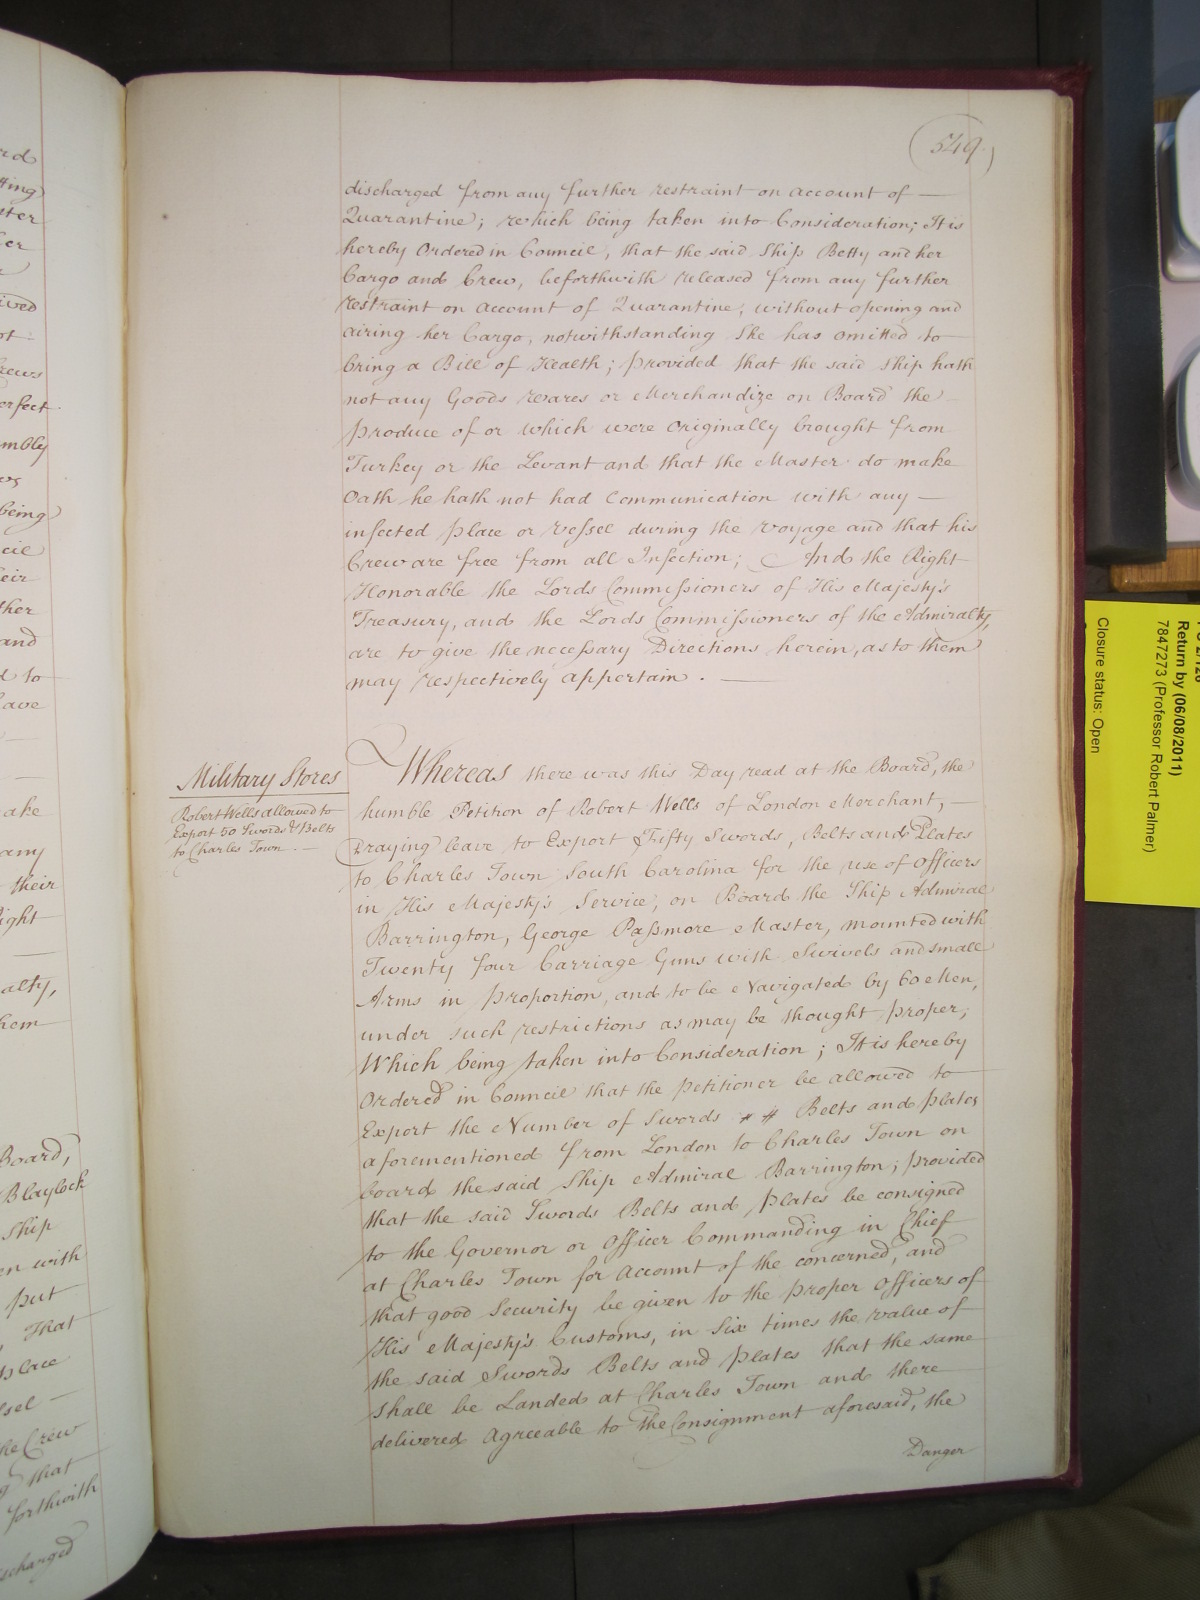 549.
discharged from any further restraint on account of —
Quarantine; which being taken into Consideration; It is
hereby Ordered in Council, that the said Ship Betty and her
Cargo and Crew, be forthwith released from any further
restraint on account of Quarantine, without opening and
airing her Cargo, notwithstanding She has omitted to
bring a Bill of Health; provided that the said Ship hath
not any Goods wares or Merchandize on Board the
produce of or which were Originally brought from
Turkey or the Levant and that the Master do make
Oath he hath not had Communication with any —
infected place or vessel during the voyage and that his
Crew are free from all Infection; And the Right
Honorable the Lords Commissioners of His Majesty's
Treasury, and the Lords Commissioners of the Admiralty,
are to give the necessary Directions herein, as to them
may respectively appertain. —
Military Stores
Robert Wells allowed to
Export 50 Swords & Belts
to Charles Town. —
Whereas there was this Day read at the Board, the
humble Petition of Robert Wells of London Merchant, —
praying leave to Export Fifty Swords, Belts and Plates
to Charles Town South Carolina for the use of Officers
in His Majesty's Service, on Board the Ship Admiral
Barrington, George Passmore Master, mounted with
Twenty four Carriage Guns with Swivels and small
Arms in proportion, and to be Navigated by 60 Men,
under such restrictions as may be thought proper;
Which being taken into Consideration; It is hereby
Ordered in Council that the petitioner be allowed to
Export the Number of Swords Belts and plates
aforementioned from London to Charles Town on
board the said Ship Admiral Barrington; provided
that the said Swords Belts and Plates be consigned
to the Governor or Officer Commanding in Chief
at Charles Town for Account of the concerned, and
that good Security be given to the proper Officers of
His Majesty's Customs, in Six times the value of
the said Swords Belts and plates that the same
shall be Landed at Charles Town and there
delivered Agreeable to the Consignment aforesaid, the
Danger
Board,
Blaylock
Ship
en with
put
That
place
the Crew
that
forthwith
scharged
Closure status: Open
7847273 (Professor Robert Palmer)
Return by (06/08/2011)